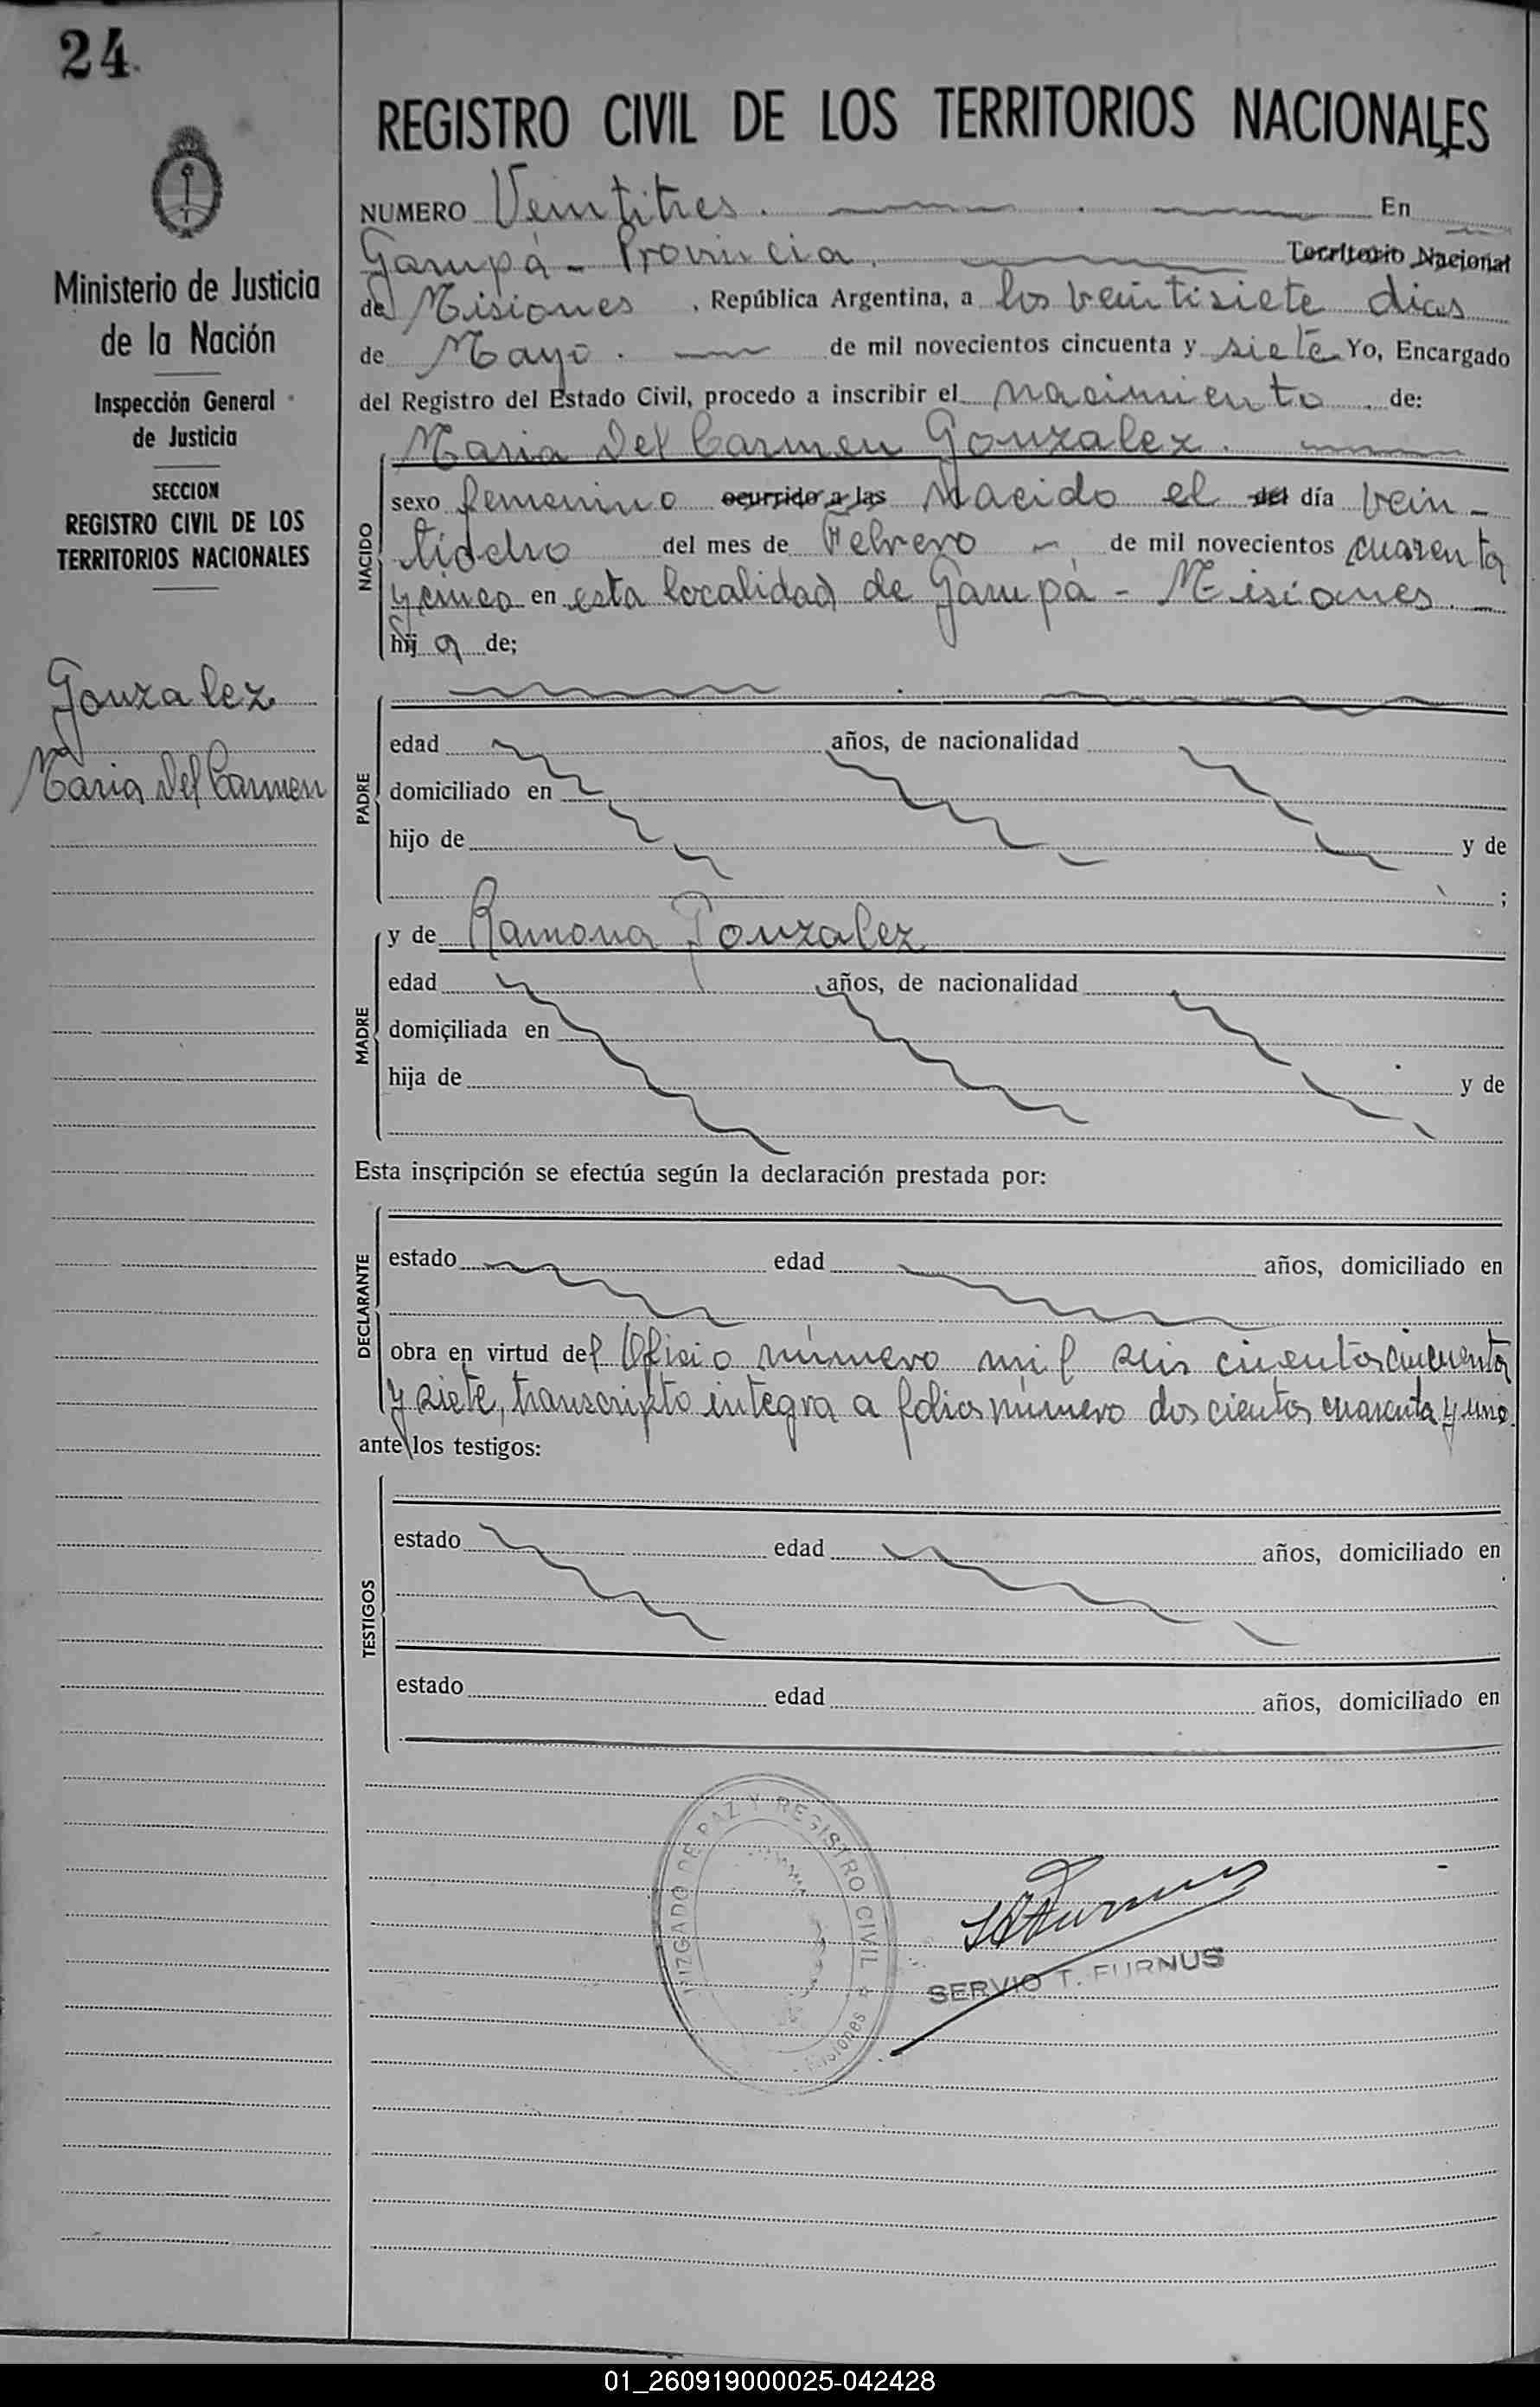 24.
Ministerio de Justicia
de la Nación
Inspección General
de Justicia
SECCION
REGISTRO CIVIL DE LOS
TERRITORIOS NACIONALES
Gonzalez
Maria Del Carmen
REGISTRO CIVIL DE LOS TERRITORIOS NACIONALES
NUMERO Veintitres. En
Garupá - Provincia. Territorio Nacional
de Misiones, República Argentina, a los veintisiete dias
de Mayo. de mil novecientos cincuenta y siete Yo, Encargado
del Registro del Estado Civil, procedo a inscribir el nacimiento de:
Maria Del Carmen Gonzalez.
NACIDO
sexo femenino ocurrido a las Nacido el del día vein-
tiocho del mes de Febrero de mil novecientos cuarenta
y cinco en esta localidad de Garupá - Misiones. -
hij a de;
PADRE
edad años, de nacionalidad
domiciliado en
hijo de y de
;
MADRE
y de Ramona Gonzalez
edad años, de nacionalidad
domiciliada en
hija de y de
Esta inscripción se efectúa según la declaración prestada por:
DECLARANTE
estado edad años, domiciliado en
obra en virtud del Oficio número mil seis cientos cincuenta
y siete, transcripto integra a folios número dos cientos cuarenta y uno.
ante los testigos:
TESTIGOS
estado edad años, domiciliado en
estado edad años, domiciliado en
JUZGADO DE PAZ Y REGISTRO CIVIL
Misiones
SERVIO T. FURNUS
01_260919000025-042428